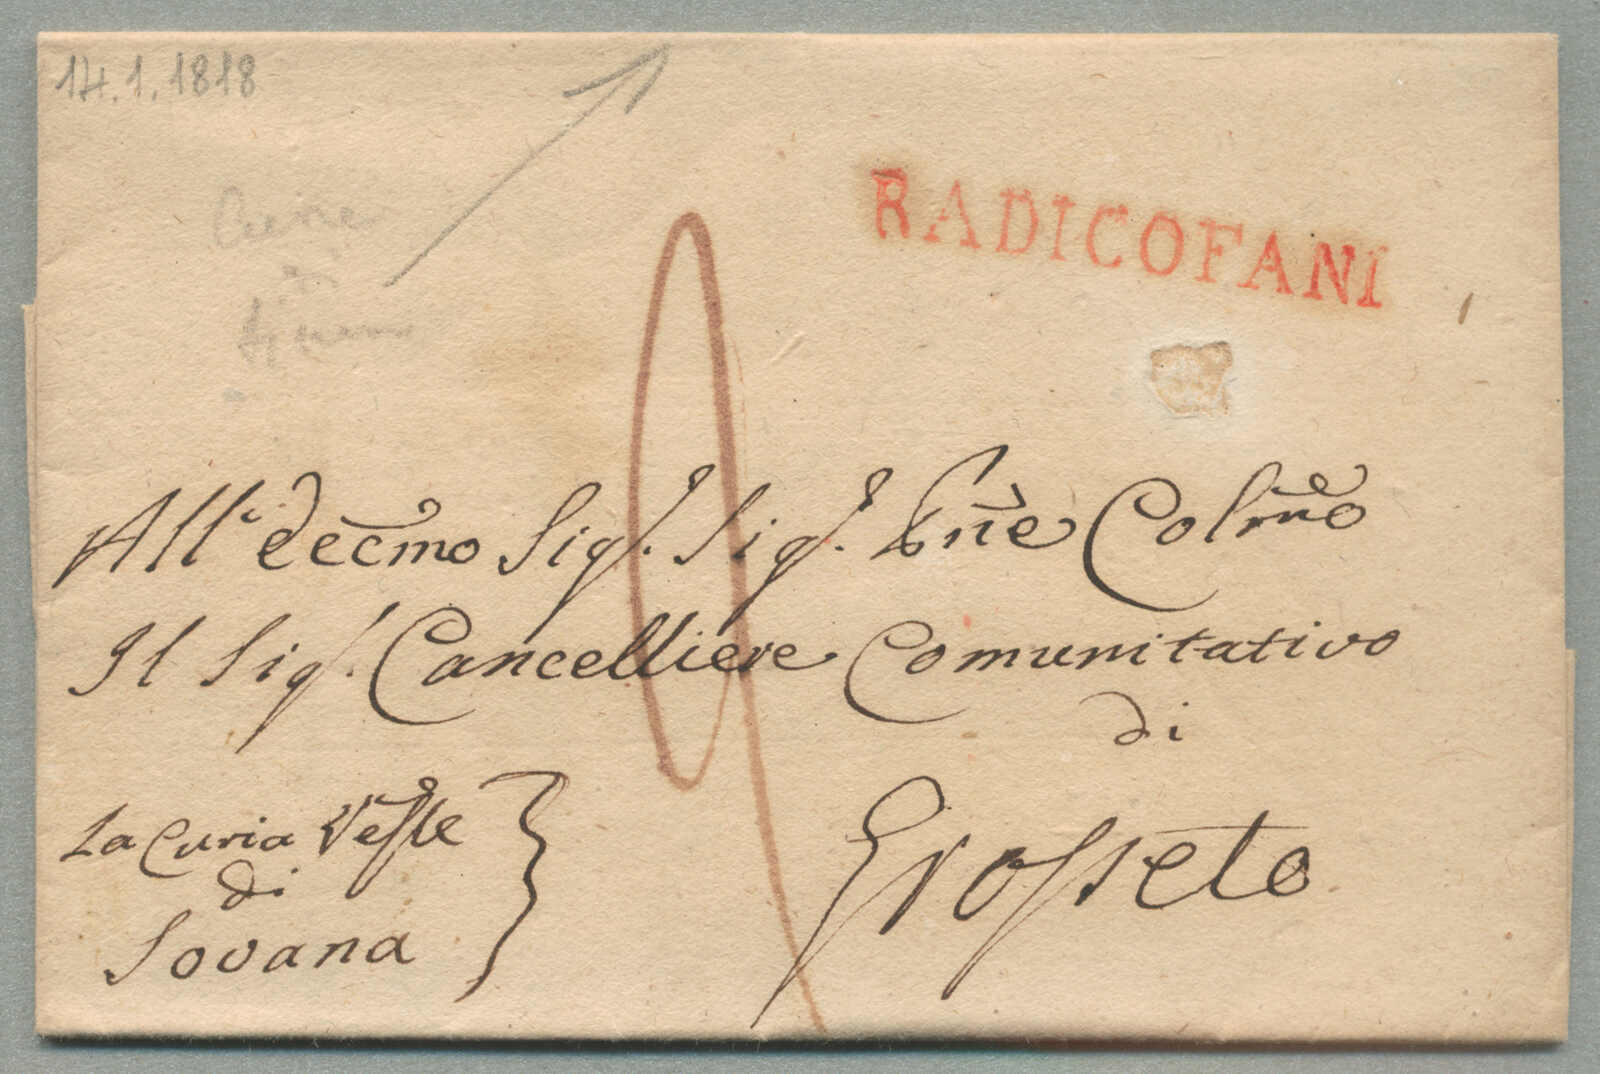 14.1.1818
RADICOFANI
9
All' Eccmo Sigr. Sigr. Prne Colmo
Il Sigr. Cancelliere Comunitativo
di
Grosseto
La Curia Vesle
di
Sovana